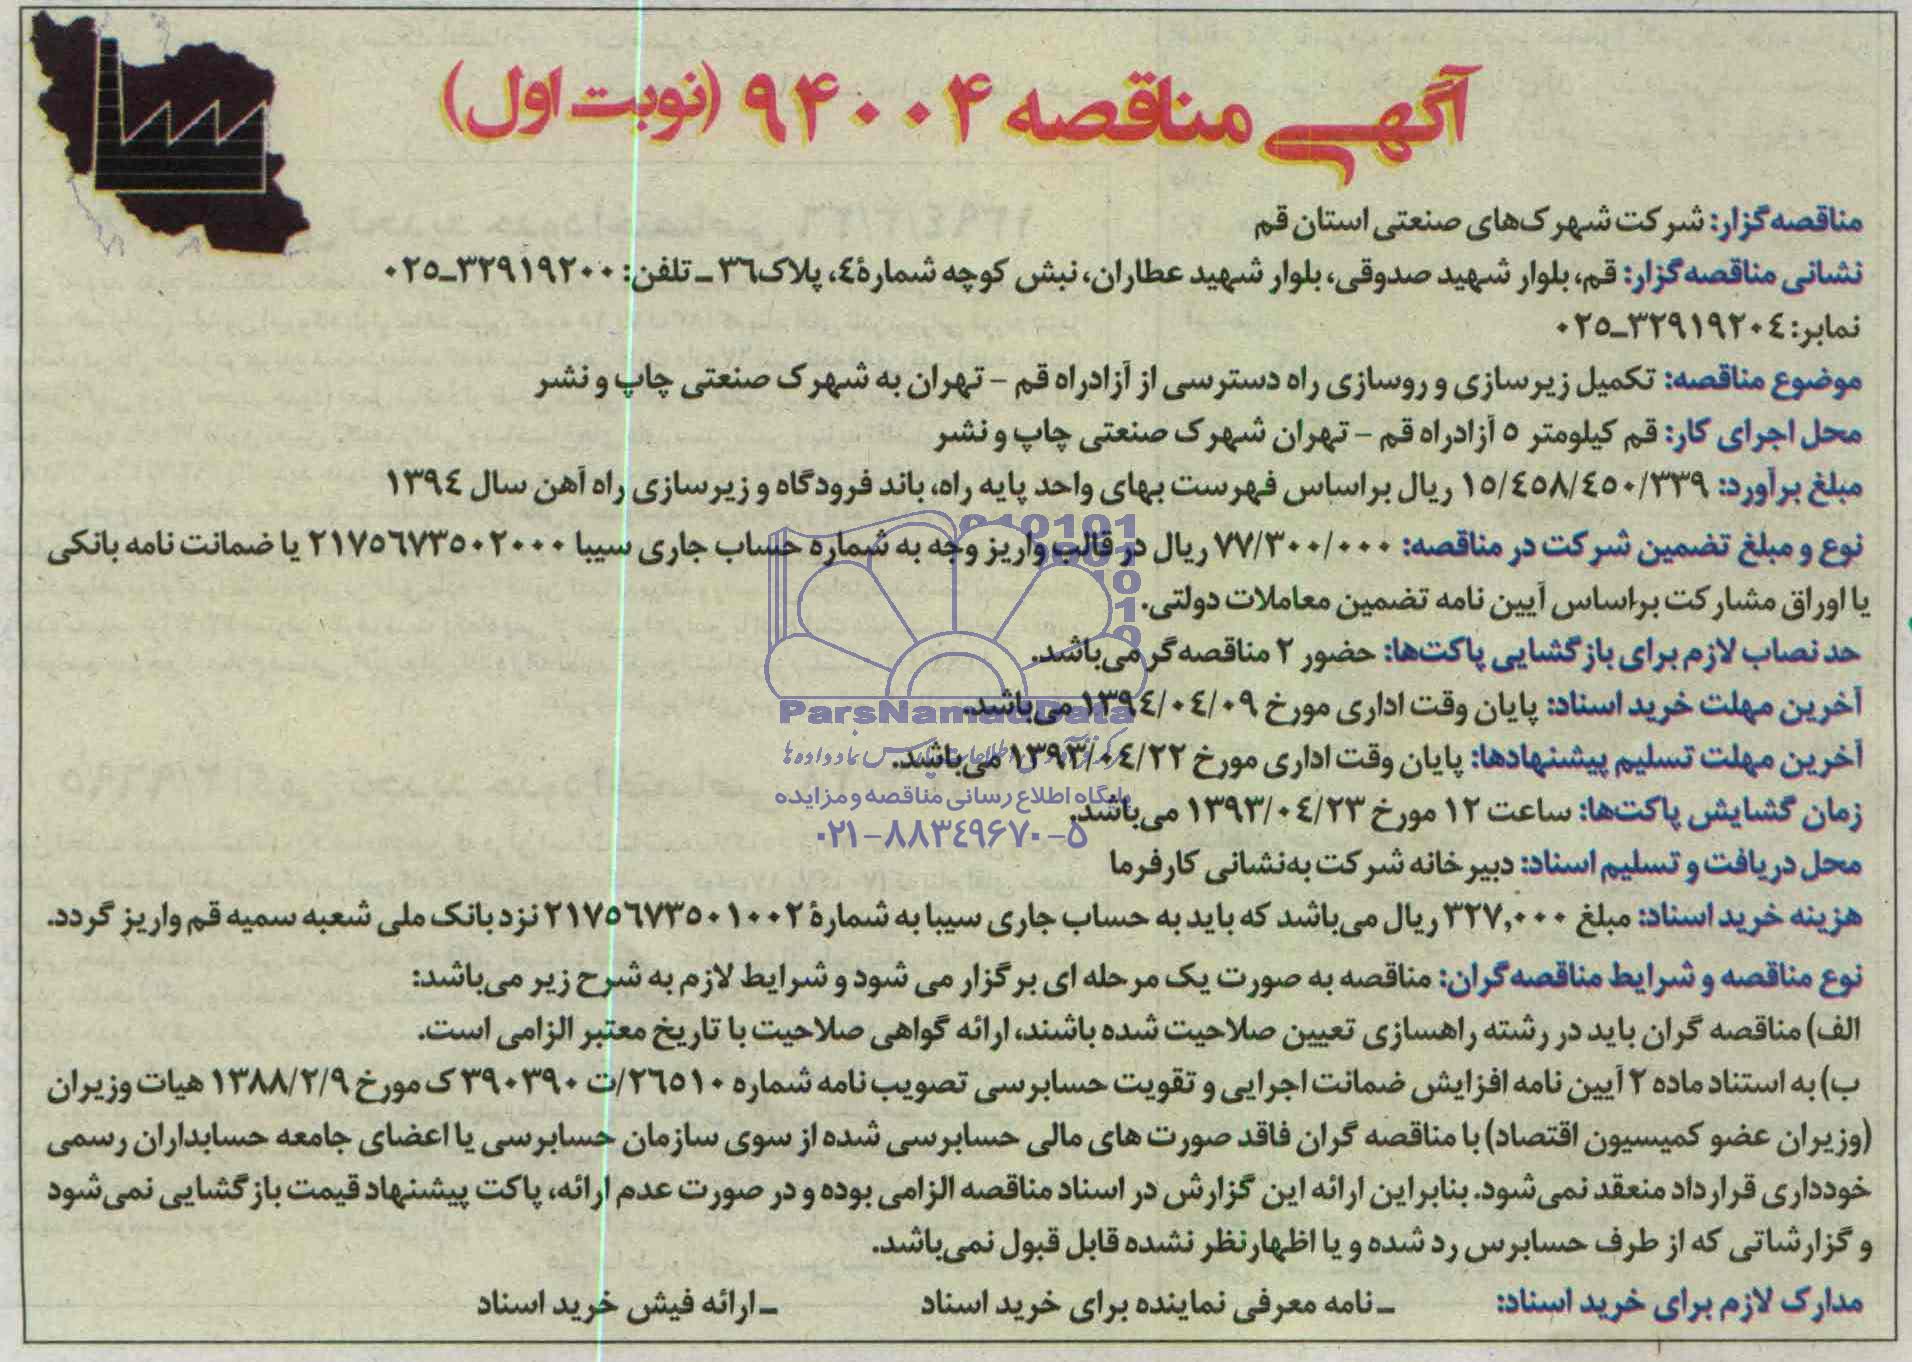 آگهی مناقصه ۹۴۰۰۴ (نوبت اول)
مناقصه‌گزار: شرکت شهرک‌های صنعتی استان قم
نشانی مناقصه‌گزار: قم، بلوار شهید صدوقی، بلوار شهید عطاران، نبش کوچه شمارهٔ ٤، پلاک ٣٦ ـ تلفن: ٣٢٩١٩٢٠٠ـ٠٢٥
نمابر: ٣٢٩١٩٢٠٤ـ٠٢٥
موضوع مناقصه: تکمیل زیرسازی و روسازی راه دسترسی از آزادراه قم – تهران به شهرک صنعتی چاپ و نشر
محل اجرای کار: قم کیلومتر ٥ آزادراه قم – تهران شهرک صنعتی چاپ و نشر
مبلغ برآورد: ١٥/٤٥٨/٤٥٠/٣٣٩ ریال براساس فهرست بهای واحد پایه راه، باند فرودگاه و زیرسازی راه آهن سال ١٣٩٤
نوع و مبلغ تضمین شرکت در مناقصه: ٧٧/٣٠٠/٠٠٠ ریال در قالب واریز وجه به شماره حساب جاری سیبا ٢١٧٥٦٧٣٥٠٢٠٠٠ یا ضمانت نامه بانکی
یا اوراق مشارکت براساس آیین نامه تضمین معاملات دولتی.
حد نصاب لازم برای بازگشایی پاکت‌ها: حضور ٢ مناقصه‌گر می‌باشد.
آخرین مهلت خرید اسناد: پایان وقت اداری مورخ ١٣٩٤/٠٤/٠٩ می‌باشد.
آخرین مهلت تسلیم پیشنهادها: پایان وقت اداری مورخ ١٣٩٣/٠٤/٢٢ می‌باشد.
زمان گشایش پاکت‌ها: ساعت ١٢ مورخ ١٣٩٣/٠٤/٢٣ می‌باشد.
محل دریافت و تسلیم اسناد: دبیرخانه شرکت به‌نشانی کارفرما
هزینه خرید اسناد: مبلغ ٣٢٧,٠٠٠ ریال می‌باشد که باید به حساب جاری سیبا به شمارهٔ ٢١٧٥٦٧٣٥٠١٠٠٢ نزد بانک ملی شعبه سمیه قم واریز گردد.
نوع مناقصه و شرایط مناقصه‌گران: مناقصه به صورت یک مرحله ای برگزار می شود و شرایط لازم به شرح زیر می‌باشد:
الف) مناقصه گران باید در رشته راهسازی تعیین صلاحیت شده باشند، ارائه گواهی صلاحیت با تاریخ معتبر الزامی است.
ب) به استناد ماده ٢ آیین نامه افزایش ضمانت اجرایی و تقویت حسابرسی تصویب نامه شماره ٢٦٥١٠/ت ٣٩٠٣٩٠ ک مورخ ١٣٨٨/٢/٩ هیات وزیران
(وزیران عضو کمیسیون اقتصاد) با مناقصه گران فاقد صورت های مالی حسابرسی شده از سوی سازمان حسابرسی یا اعضای جامعه حسابداران رسمی
خودداری قرارداد منعقد نمی‌شود. بنابراین ارائه این گزارش در اسناد مناقصه الزامی بوده و در صورت عدم ارائه، پاکت پیشنهاد قیمت بازگشایی نمی‌شود
و گزارشاتی که از طرف حسابرس رد شده و یا اظهارنظر نشده قابل قبول نمی‌باشد.
مدارک لازم برای خرید اسناد: ـ نامه معرفی نماینده برای خرید اسناد ـ ارائه فیش خرید اسناد
ParsNamadData
پایگاه اطلاع رسانی مناقصه و مزایده
۰۲۱-۸۸۳۴۹۶۷۰-۵